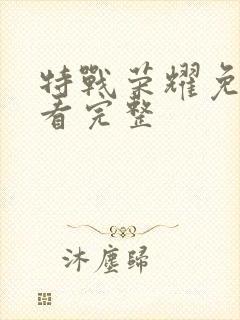 特戰荣耀免
看完整
沐塵歸